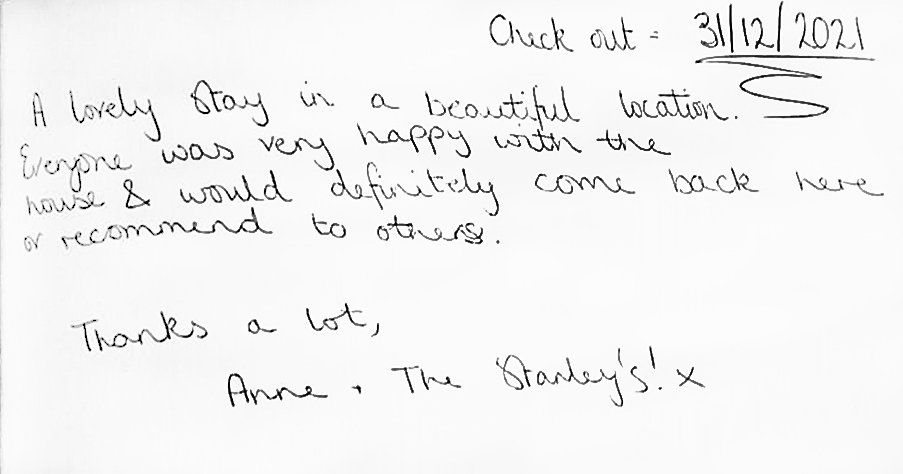 Check out = 31/12/2021
A lovely stay in a beautiful location.
Everyone was very happy with the
house & would definitely come back here
or recommend to others.
Thanks a lot,
Anne + The Stanley's! x